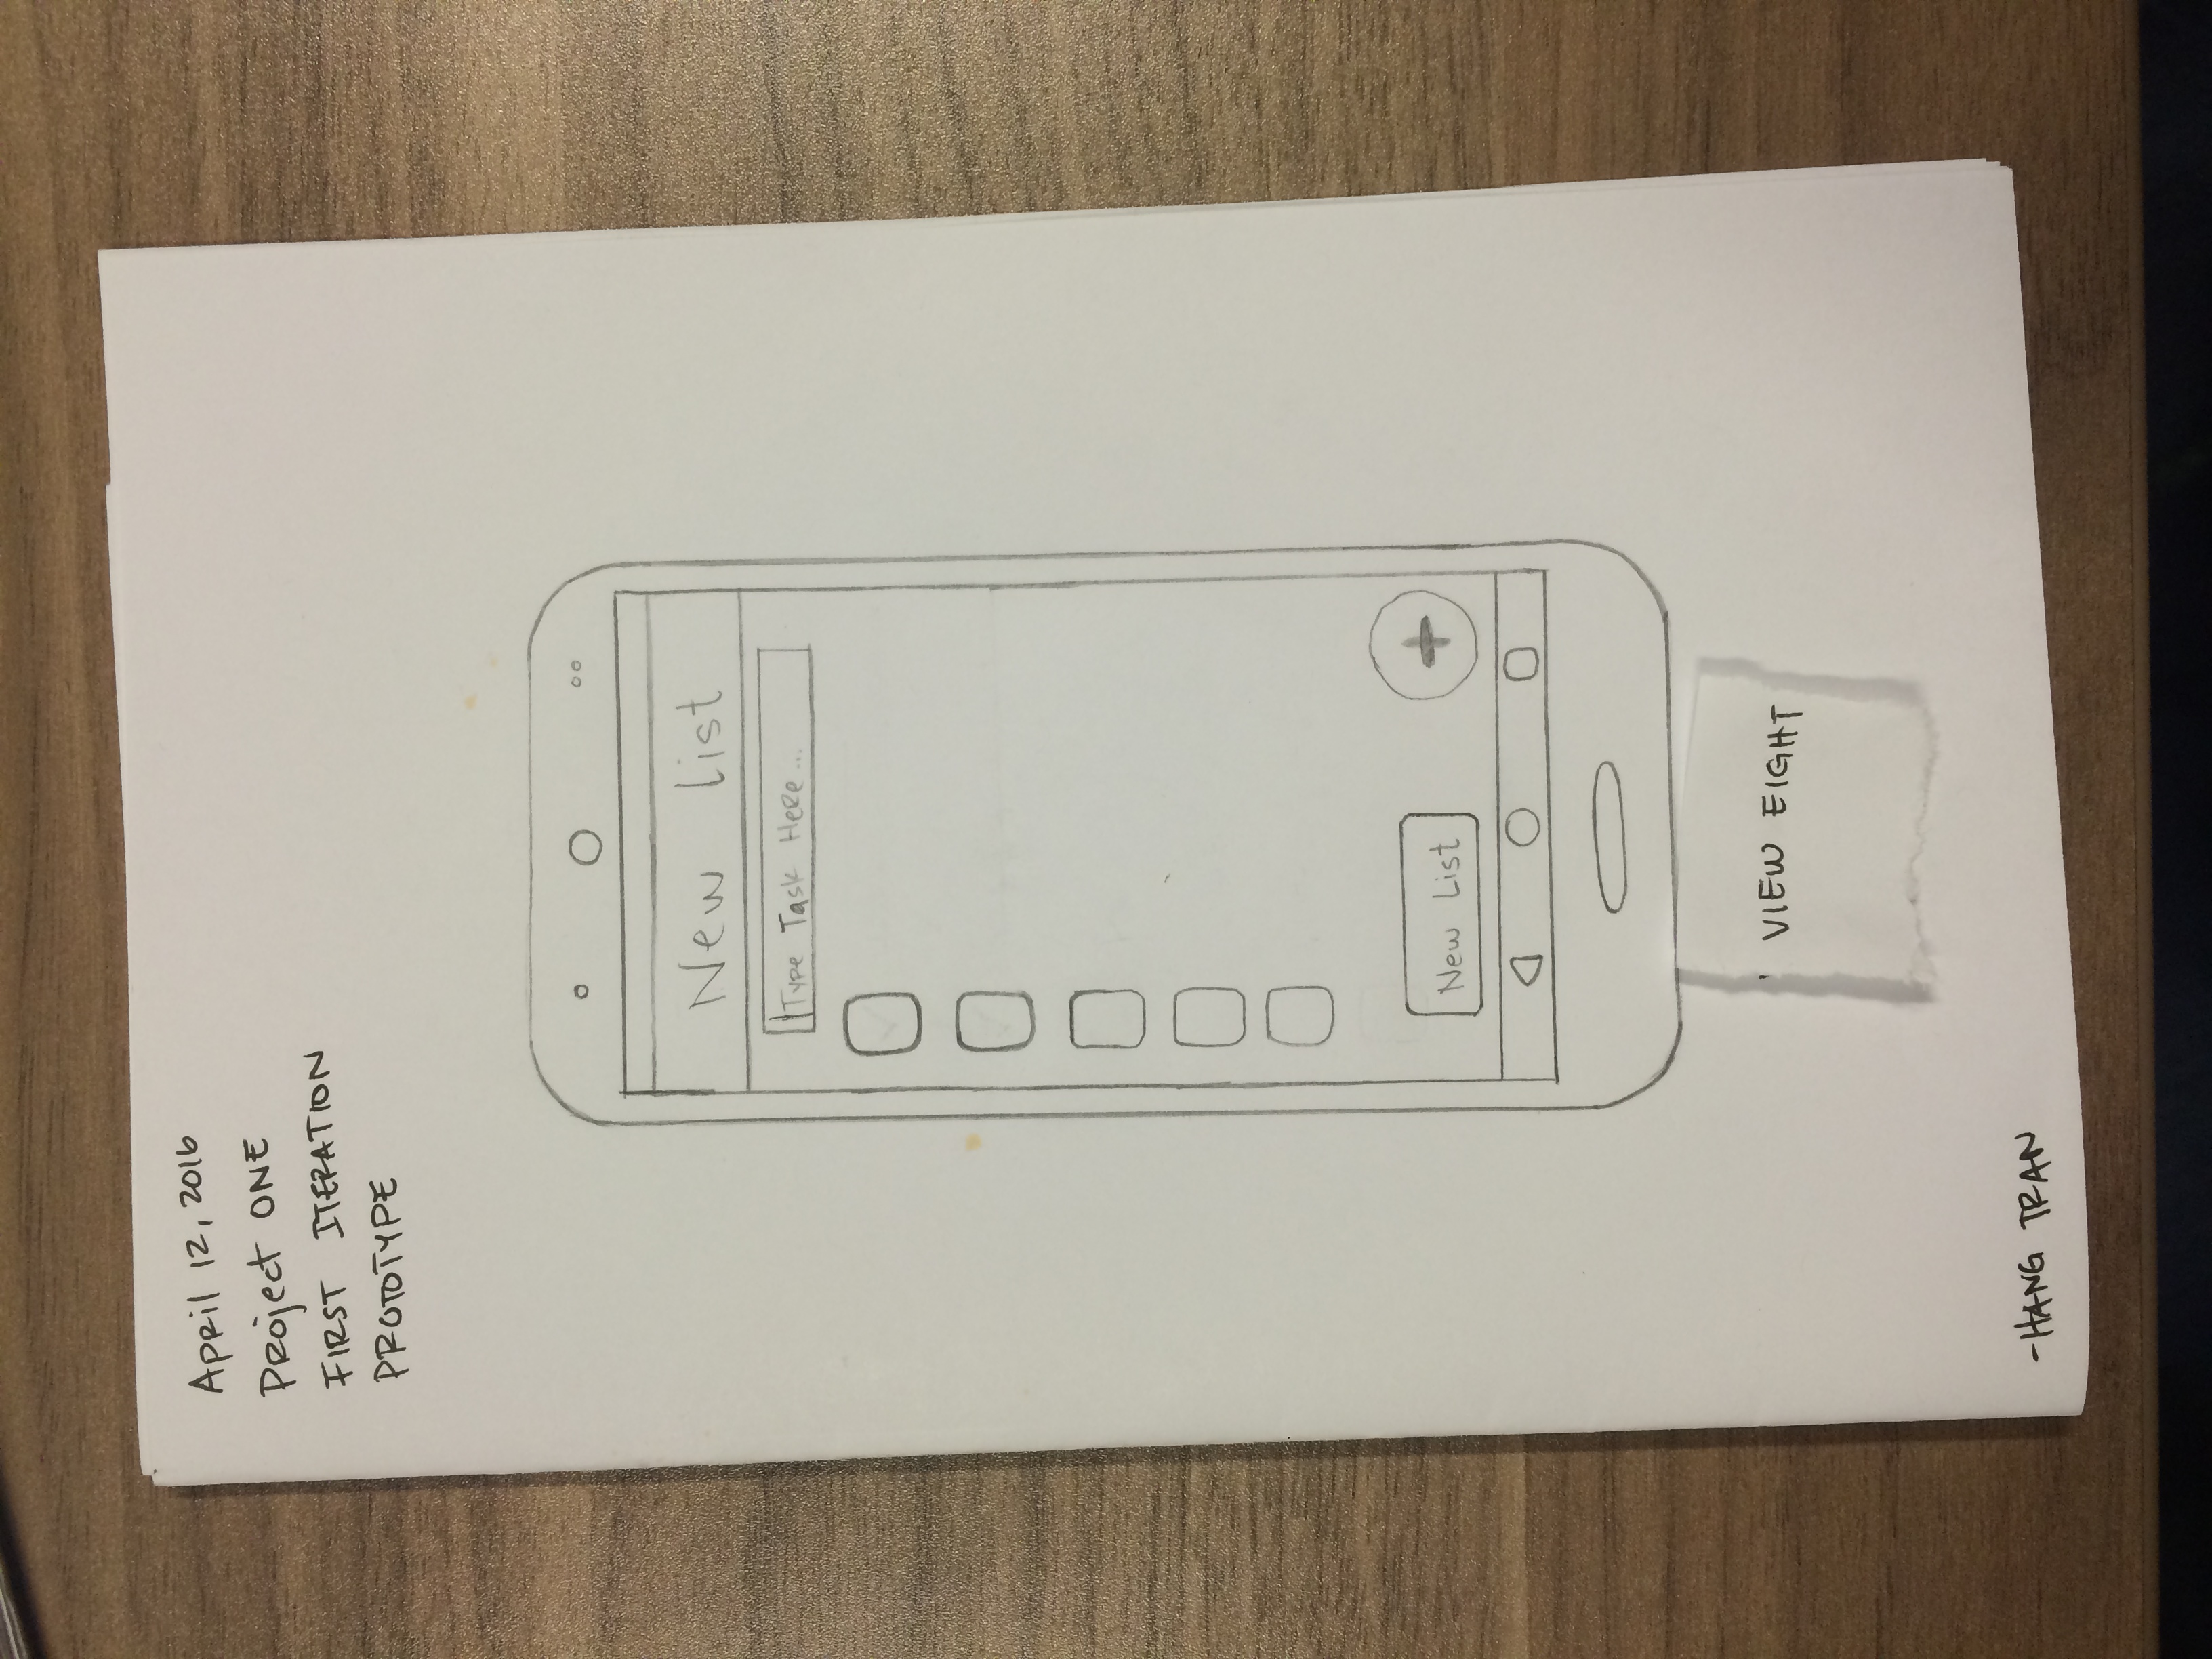 April 12, 2016
Project ONE
FIRST ITERATION
PROTOTYPE
New list
Type Task Here...
New List
+
VIEW EIGHT
-HANG TRAN